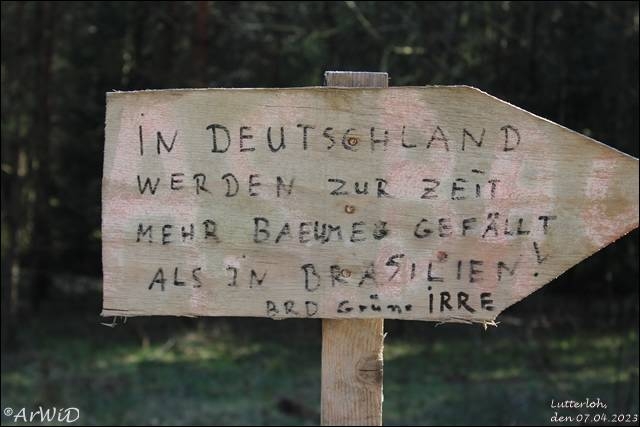 IN DEUTSCHLAND
WERDEN ZUR ZEIT
MEHR BAEUMEG GEFÄLLT
ALS IN BRASILIEN!
BRD Grüne IRRE
©ArWiD
Lutterloh,
den 07.04.2023